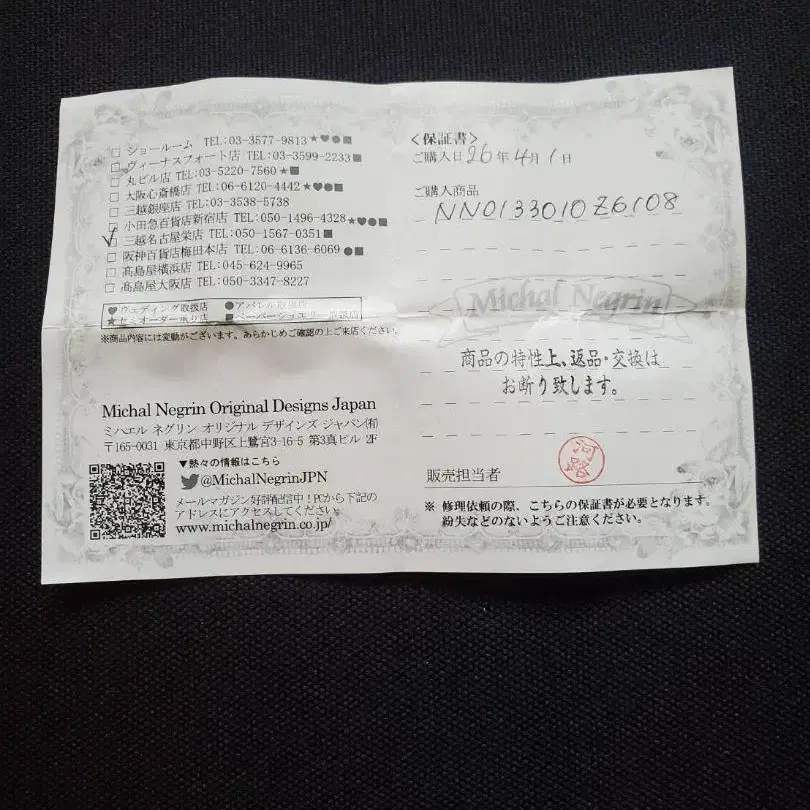 □ ショールーム TEL:03-3577-9813★♥●■
□ ヴィーナスフォート店 TEL:03-3599-2233■
□ 丸ビル店 TEL:03-5220-7560★■
□ 大阪心斎橋店 TEL:06-6120-4442★♥●■
□ 三越銀座店 TEL:03-3538-5738
□ 小田急百貨店新宿店 TEL:050-1496-4328★♥●■
☑ 三越名古屋栄店 TEL:050-1567-0351■
□ 阪神百貨店梅田本店 TEL:06-6136-6069●■
□ 髙島屋横浜店 TEL:045-624-9965
□ 髙島屋大阪店 TEL:050-3347-8227
♥ウェディング取扱店 ●アパレル取扱店
★セミオーダー承り店 ■ペーパージュエリー取扱店
※商品内容には変動がございます。あらかじめご確認の上ご来店ください。
Michal Negrin Original Designs Japan
ミハエル ネグリン オリジナル デザインズ ジャパン㈲
〒165-0031 東京都中野区上鷺宮3-16-5 第3真ビル 2F
▼熱々の情報はこちら
@MichalNegrinJPN
メールマガジン好評配信中!PCから下記の
アドレスにアクセスしてください。
www.michalnegrin.co.jp/
<保証書>
ご購入日 26年4月1日
ご購入商品
NN0133010Z6108
Michal Negrin
商品の特性上、返品・交換は
お断り致します。
販売担当者
※ 修理依頼の際、こちらの保証書が必要となります。
紛失などのないようご注意ください。